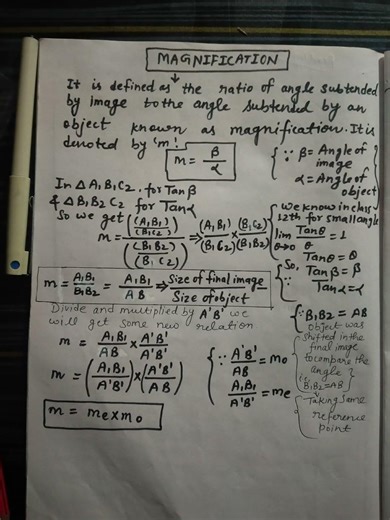 MAGNIFICATION
↓
It is defined as the ratio of angle subtended
by image to the angle subtended by an
object known as magnification. It is
denoted by 'm'.
m = β/α
{ ∵ β = Angle of
image
α = Angle of
object
In Δ A₁B₁C₂. for Tanβ
& Δ B₁B₂C₂ for Tanα
So we get
m = ((A₁B₁)/(B₁C₂))/((B₁B₂)/(B₁C₂)) ⇒ (A₁B₁)/(B₁C₂) × (B₁C₂)/(B₁B₂)
we know in class
12th for small angle
lim θ→0 Tanθ/θ = 1
Tanθ = θ
So,
∵ Tanβ = β
Tanα = α
m = A₁B₁/B₁B₂ = A₁B₁/AB ⇒ Size of final image/Size of object
Divide and multiplied by A'B' we
will get some new relation
{ ∵ B₁B₂ = AB
object was
shifted in the
final image
to compare the
angle
∵ B₁B₂ = AB
↓
Taking same
reference
point
m = A₁B₁/AB × A'B'/A'B'
m = (A₁B₁/A'B') × (A'B'/AB)
{ ∵ A'B'/AB = mo
A₁B₁/A'B' = me
m = me x mo